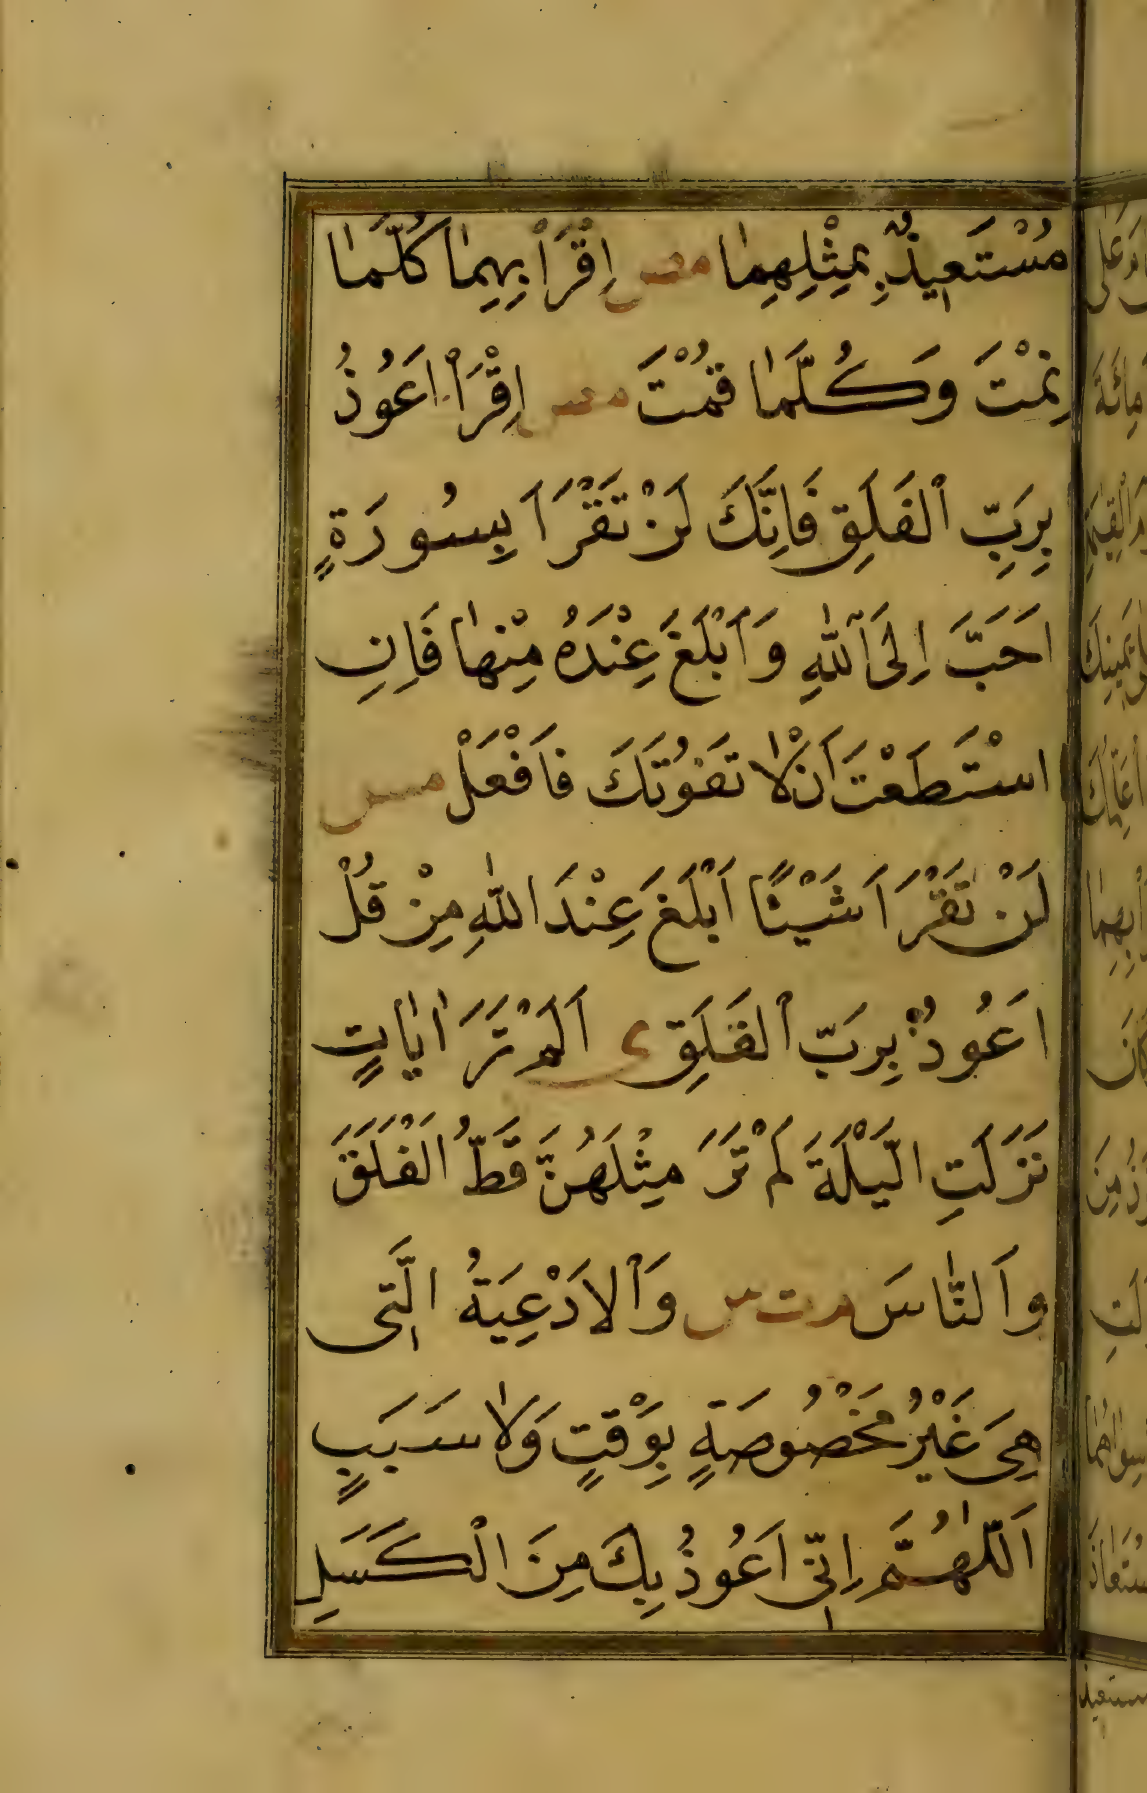 مُسْتَعِيذٌ بِمِثْلِهِمَا مص اِقْرَأْ بِهِمَا كُلَّمَا
نِمْتَ وَكُلَّمَا قُمْتَ مص اِقْرَأْ اَعُوذُ
بِرَبِّ الْفَلَقِ فَاِنَّكَ لَنْ تَقْرَأَ بِسُورَةٍ
اَحَبَّ اِلَى اللّٰهِ وَاَبْلَغَ عِنْدَهُ مِنْهَا فَاِنِ
اسْتَطَعْتَ اَنْ لَا تَفُوتَكَ فَافْعَلْ مس
لَنْ تَقْرَأَ شَيْئًا اَبْلَغَ عِنْدَ اللّٰهِ مِنْ قُلْ
اَعُوذُ بِرَبِّ الْفَلَقِ ى اَلَمْ تَرَ اٰيَاتٍ
نَزَلَتِ اللَّيْلَةَ لَمْ تَرَ مِثْلَهُنَّ قَطُّ الْفَلَقَ
وَالنَّاسَ م ت س وَالْاَدْعِيَةُ الَّتِى
هِىَ غَيْرُ مَخْصُوصَةٍ بِوَقْتٍ وَلَا سَبَبٍ
اَللّٰهُمَّ اِنِّى اَعُوذُ بِكَ مِنَ الْكَسَلِ